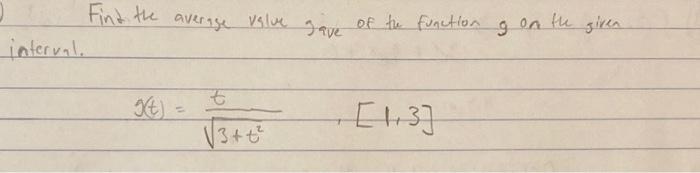 Find the average value gave of the function g on the given
interval.
g(t) = t / √3+t² , [1,3]